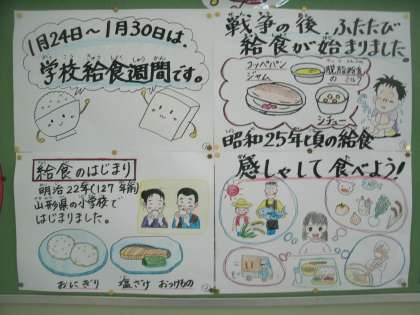 1月24日～1月30日は、
学校給食週間です。
がっこうきゅうしょくしゅうかん
戦争の後、ふたたび
給食が始まりました。
コッペパン
ジャム
脱脂粉乳
のミルク
シチュー
昭和25年頃の給食
給食のはじまり
明治22年(127年前)
山形県の小学校で
はじまりました。
おにぎり 塩ざけ おつけもの
感しゃして食べよう!